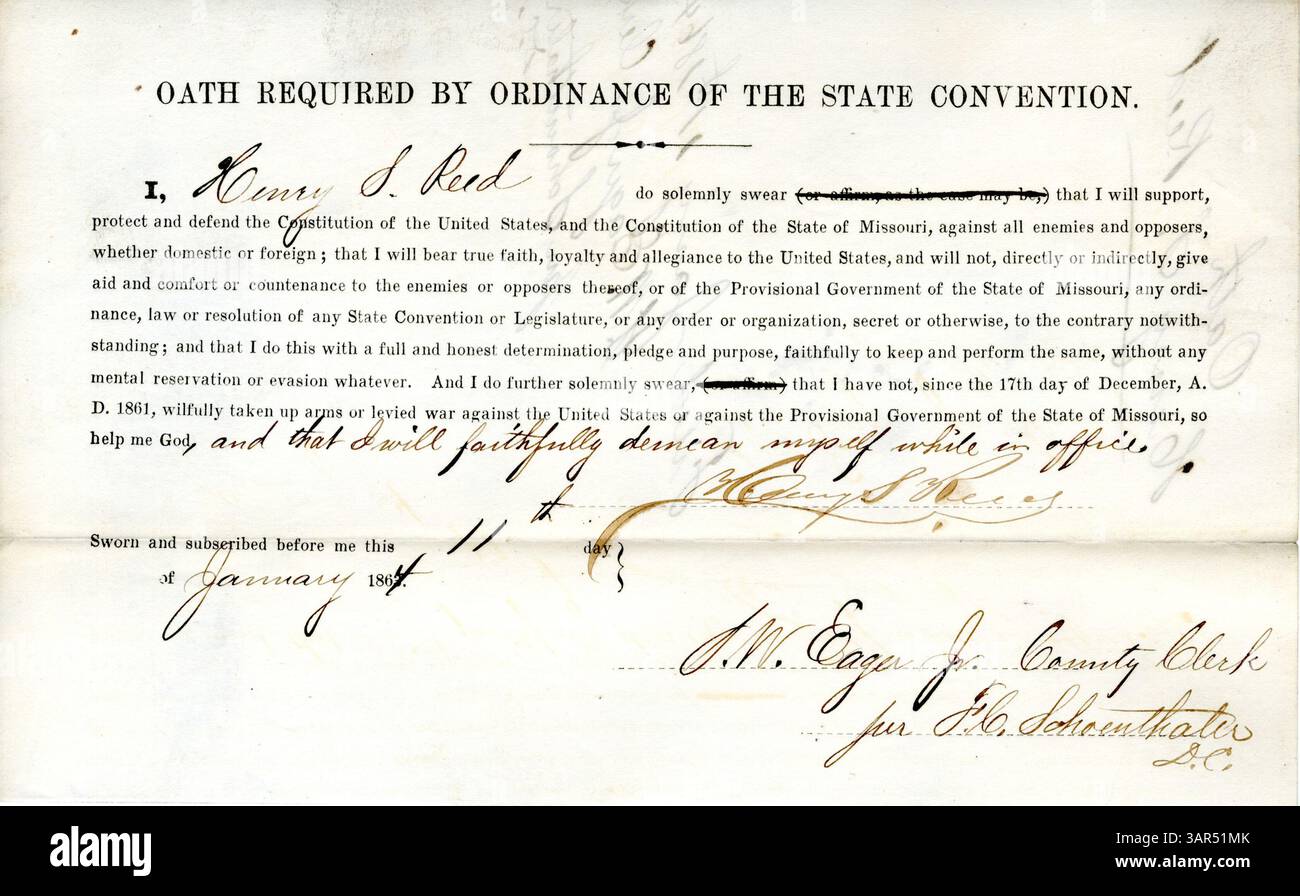 OATH REQUIRED BY ORDINANCE OF THE STATE CONVENTION.
I, Henry S. Reed do solemnly swear (or affirm, as the case may be,) that I will support,
protect and defend the Constitution of the United States, and the Constitution of the State of Missouri, against all enemies and opposers,
whether domestic or foreign; that I will bear true faith, loyalty and allegiance to the United States, and will not, directly or indirectly, give
aid and comfort or countenance to the enemies or opposers thereof, or of the Provisional Government of the State of Missouri, any ordi-
nance, law or resolution of any State Convention or Legislature, or any order or organization, secret or otherwise, to the contrary notwith-
standing; and that I do this with a full and honest determination, pledge and purpose, faithfully to keep and perform the same, without any
mental reservation or evasion whatever. And I do further solemnly swear, (or affirm) that I have not, since the 17th day of December, A.
D. 1861, wilfully taken up arms or levied war against the United States or against the Provisional Government of the State of Missouri, so
help me God, and that I will faithfully demean myself while in office.
Henry S Reed
Sworn and subscribed before me this 11th day
of January 1864
S. W. Eager Jr. County Clerk
per F. C. Schoenthaler
D.C.
alamy
Image ID: 3AR51MK
www.alamy.com